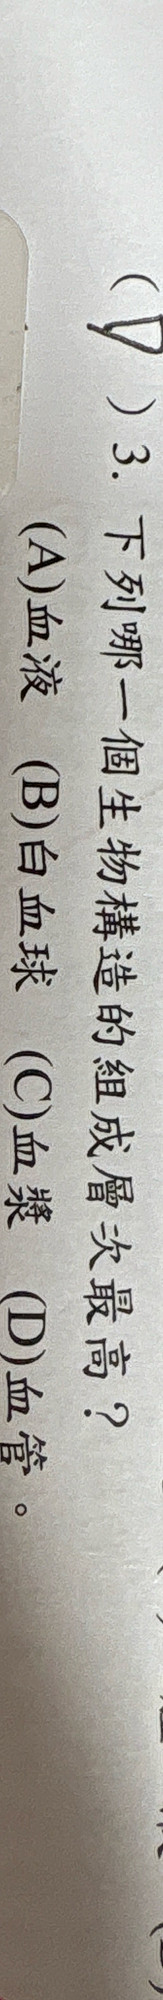 ( D ) 3. 下列哪一個生物構造的組成層次最高？
(A)血液 (B)白血球 (C)血漿 (D)血管。